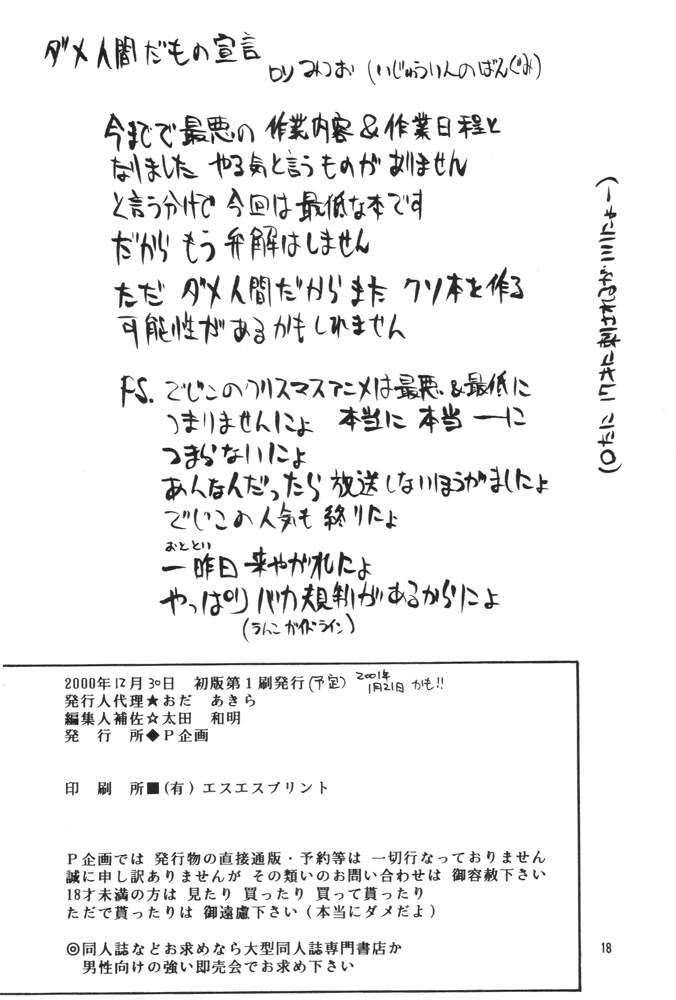 ダメ人間だもの宣言
by みつお (いじゅういんのばんぐみ)
今までで最悪の 作業内容&作業日程と
なりました やる気と言うものがありません
と言う分けで 今回は最低な本です
だから もう弁解はしません
ただ ダメ人間だから また クソ本を作る
可能性があるかもしれません
P.S. でじこのクリスマスアニメは最悪&最低に
つまりませんにょ 本当に 本当ーに
つまらないにょ
あんなんだったら 放送しないほうがましにょ
でじこの人気も 終りにょ
おととい
一昨日 来やがれにょ
やっぱり バカ規制があるからにょ
(うんこ ガイドライン)
2000年12月30日 初版第1刷発行(予定) 2001年
1月21日 かも!!
発行人代理★おだ あきら
編集人補佐☆太田 和明
発 行 所◆P企画
印 刷 所■(有)エスエスプリント
P企画では 発行物の直接通販・予約等は 一切行なっておりません
誠に申し訳ありませんが その類いのお問い合わせは 御容赦下さい
18才未満の方は 見たり 買ったり 買って貰ったり
ただで貰ったりは 御遠慮下さい(本当にダメだよ)
◎同人誌などお求めなら大型同人誌専門書店か
男性向けの強い即売会でお求め下さい
18